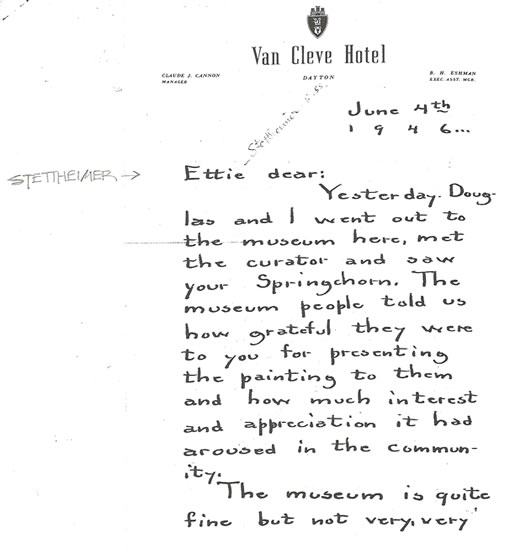 Van Cleve Hotel
CLAUDE J. CANNON
MANAGER
DAYTON
B. H. ESHMAN
EXEC. ASST. MGR.
June 4th
1946...
Stettheimer
STETTHEIMER →
Ettie dear:
Yesterday. Doug-
las and I went out to
the museum here, met
the curator and saw
your Springchorn. The
museum people told us
how grateful they were
to you for presenting
the painting to them
and how much interest
and appreciation it had
aroused in the commun-
ity.
The museum is quite
fine but not very, very